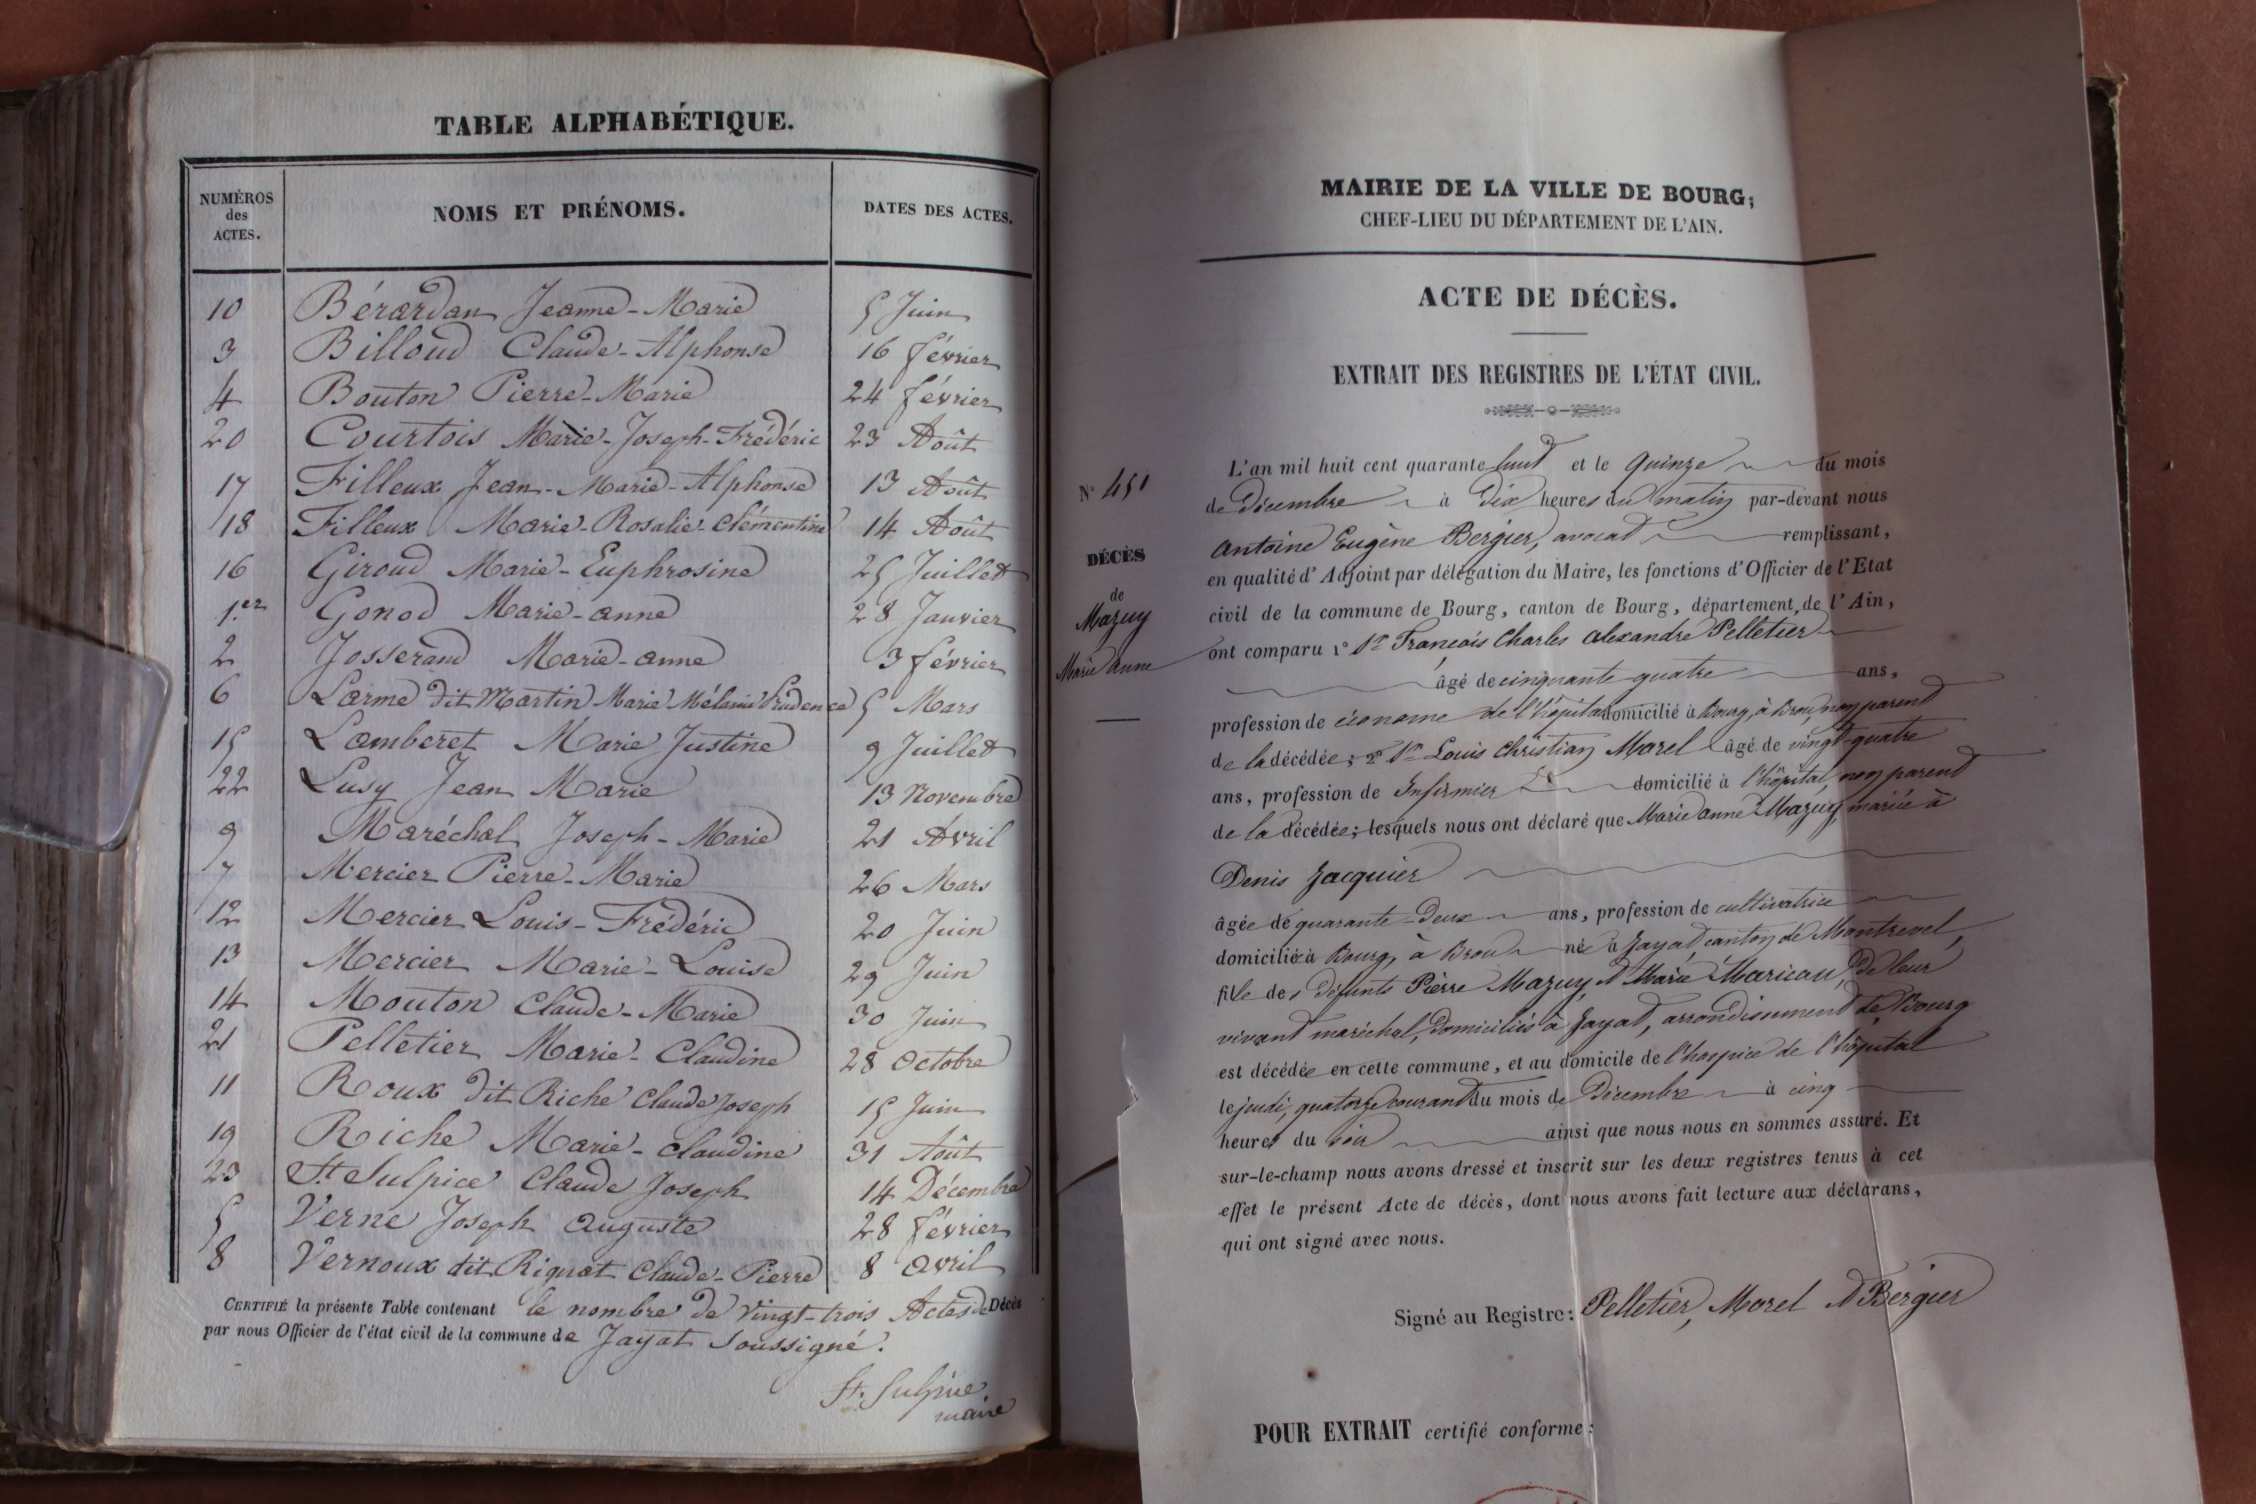 TABLE ALPHABÉTIQUE.
NUMÉROS des ACTES.
NOMS ET PRÉNOMS.
DATES DES ACTES.
10 Bérardan Jeanne-Marie 5 Juin
3 Billoud Claude-Alphonse 16 février
4 Bouton Pierre-Marie 24 février
20 Courtois Marie-Joseph-Frédéric 23 Août
17 Filleux Jean-Marie-Alphonse 13 Août
18 Filleux Marie-Rosalie-Clémentine 14 Août
16 Giroud Marie-Euphrosine 25 Juillet
1.er Gonod Marie-anne 28 Janvier
2 Josserand Marie-anne 3 février
6 Larme dit Martin Marie Mélanie Prudence 5 Mars
15 Lamberet Marie Justine 9 Juillet
22 Lusy Jean Marie 13 Novembre
9 Maréchal Joseph-Marie 21 Avril
7 Mercier Pierre-Marie 26 Mars
12 Mercier Louis-Frédéric 20 Juin
13 Mercier Marie-Louise 29 Juin
14 Mouton Claude-Marie 30 Juin
21 Pelletier Marie-Claudine 28 Octobre
11 Roux dit Riche Claude Joseph 15 Juin
19 Riche Marie-Claudine 31 Août
23 St Sulpice Claude Joseph 14 Décembre
5 Verne Joseph auguste 28 février
8 Vernoux dit Riquet Claude-Pierre 8 avril
CERTIFIÉ la présente Table contenant le nombre de Vingt-trois Actes de Décès
par nous Officier de l'état civil de la commune de Jayat Soussigné.
St. Sulpice
maire
MAIRIE DE LA VILLE DE BOURG;
CHEF-LIEU DU DÉPARTEMENT DE L'AIN.
ACTE DE DÉCÈS.
EXTRAIT DES REGISTRES DE L'ÉTAT CIVIL.
N° 451
DÉCÈS
de
Mazuy
Marie anne
L'an mil huit cent quarante huit et le Quinze du mois
de Décembre à Dix heures du matin par-devant nous
Antoine Eugène Bergier, avocat remplissant,
en qualité d'Adjoint par délégation du Maire, les fonctions d'Officier de l'Etat
civil de la commune de Bourg, canton de Bourg, département de l'Ain,
ont comparu 1° Sr François Charles Alexandre Pelletier
âgé de cinquante quatre ans,
profession de économe de l'hôpital domicilié à Bourg, à Brou, non parent
de la décédée; 2° Sr Louis Christian Morel âgé de vingt-quatre
ans, profession de Infirmier domicilié à l'hôpital, non parent
de la décédée; lesquels nous ont déclaré que Marie anne Mazuy, mariée à
Denis Jacquier
âgée de quarante-Deux ans, profession de cultivatrice
domiciliée à Bourg, à Brou née à Jayat canton de Montrevel,
fille des défunts Pierre Mazuy, et Marie Maricau, de leur
vivant maréchal, Domiciliés à Jayat, arrondissement de Bourg
est décédée en cette commune, et au domicile de l'hospice de l'hôpital
le jeudi, quatorze courant du mois de Décembre à cinq
heures du soir ainsi que nous nous en sommes assuré. Et
sur-le-champ nous avons dressé et inscrit sur les deux registres tenus à cet
effet le présent Acte de décès, dont nous avons fait lecture aux déclarans,
qui ont signé avec nous.
Signé au Registre: Pelletier, Morel et Bergier
POUR EXTRAIT certifié conforme: